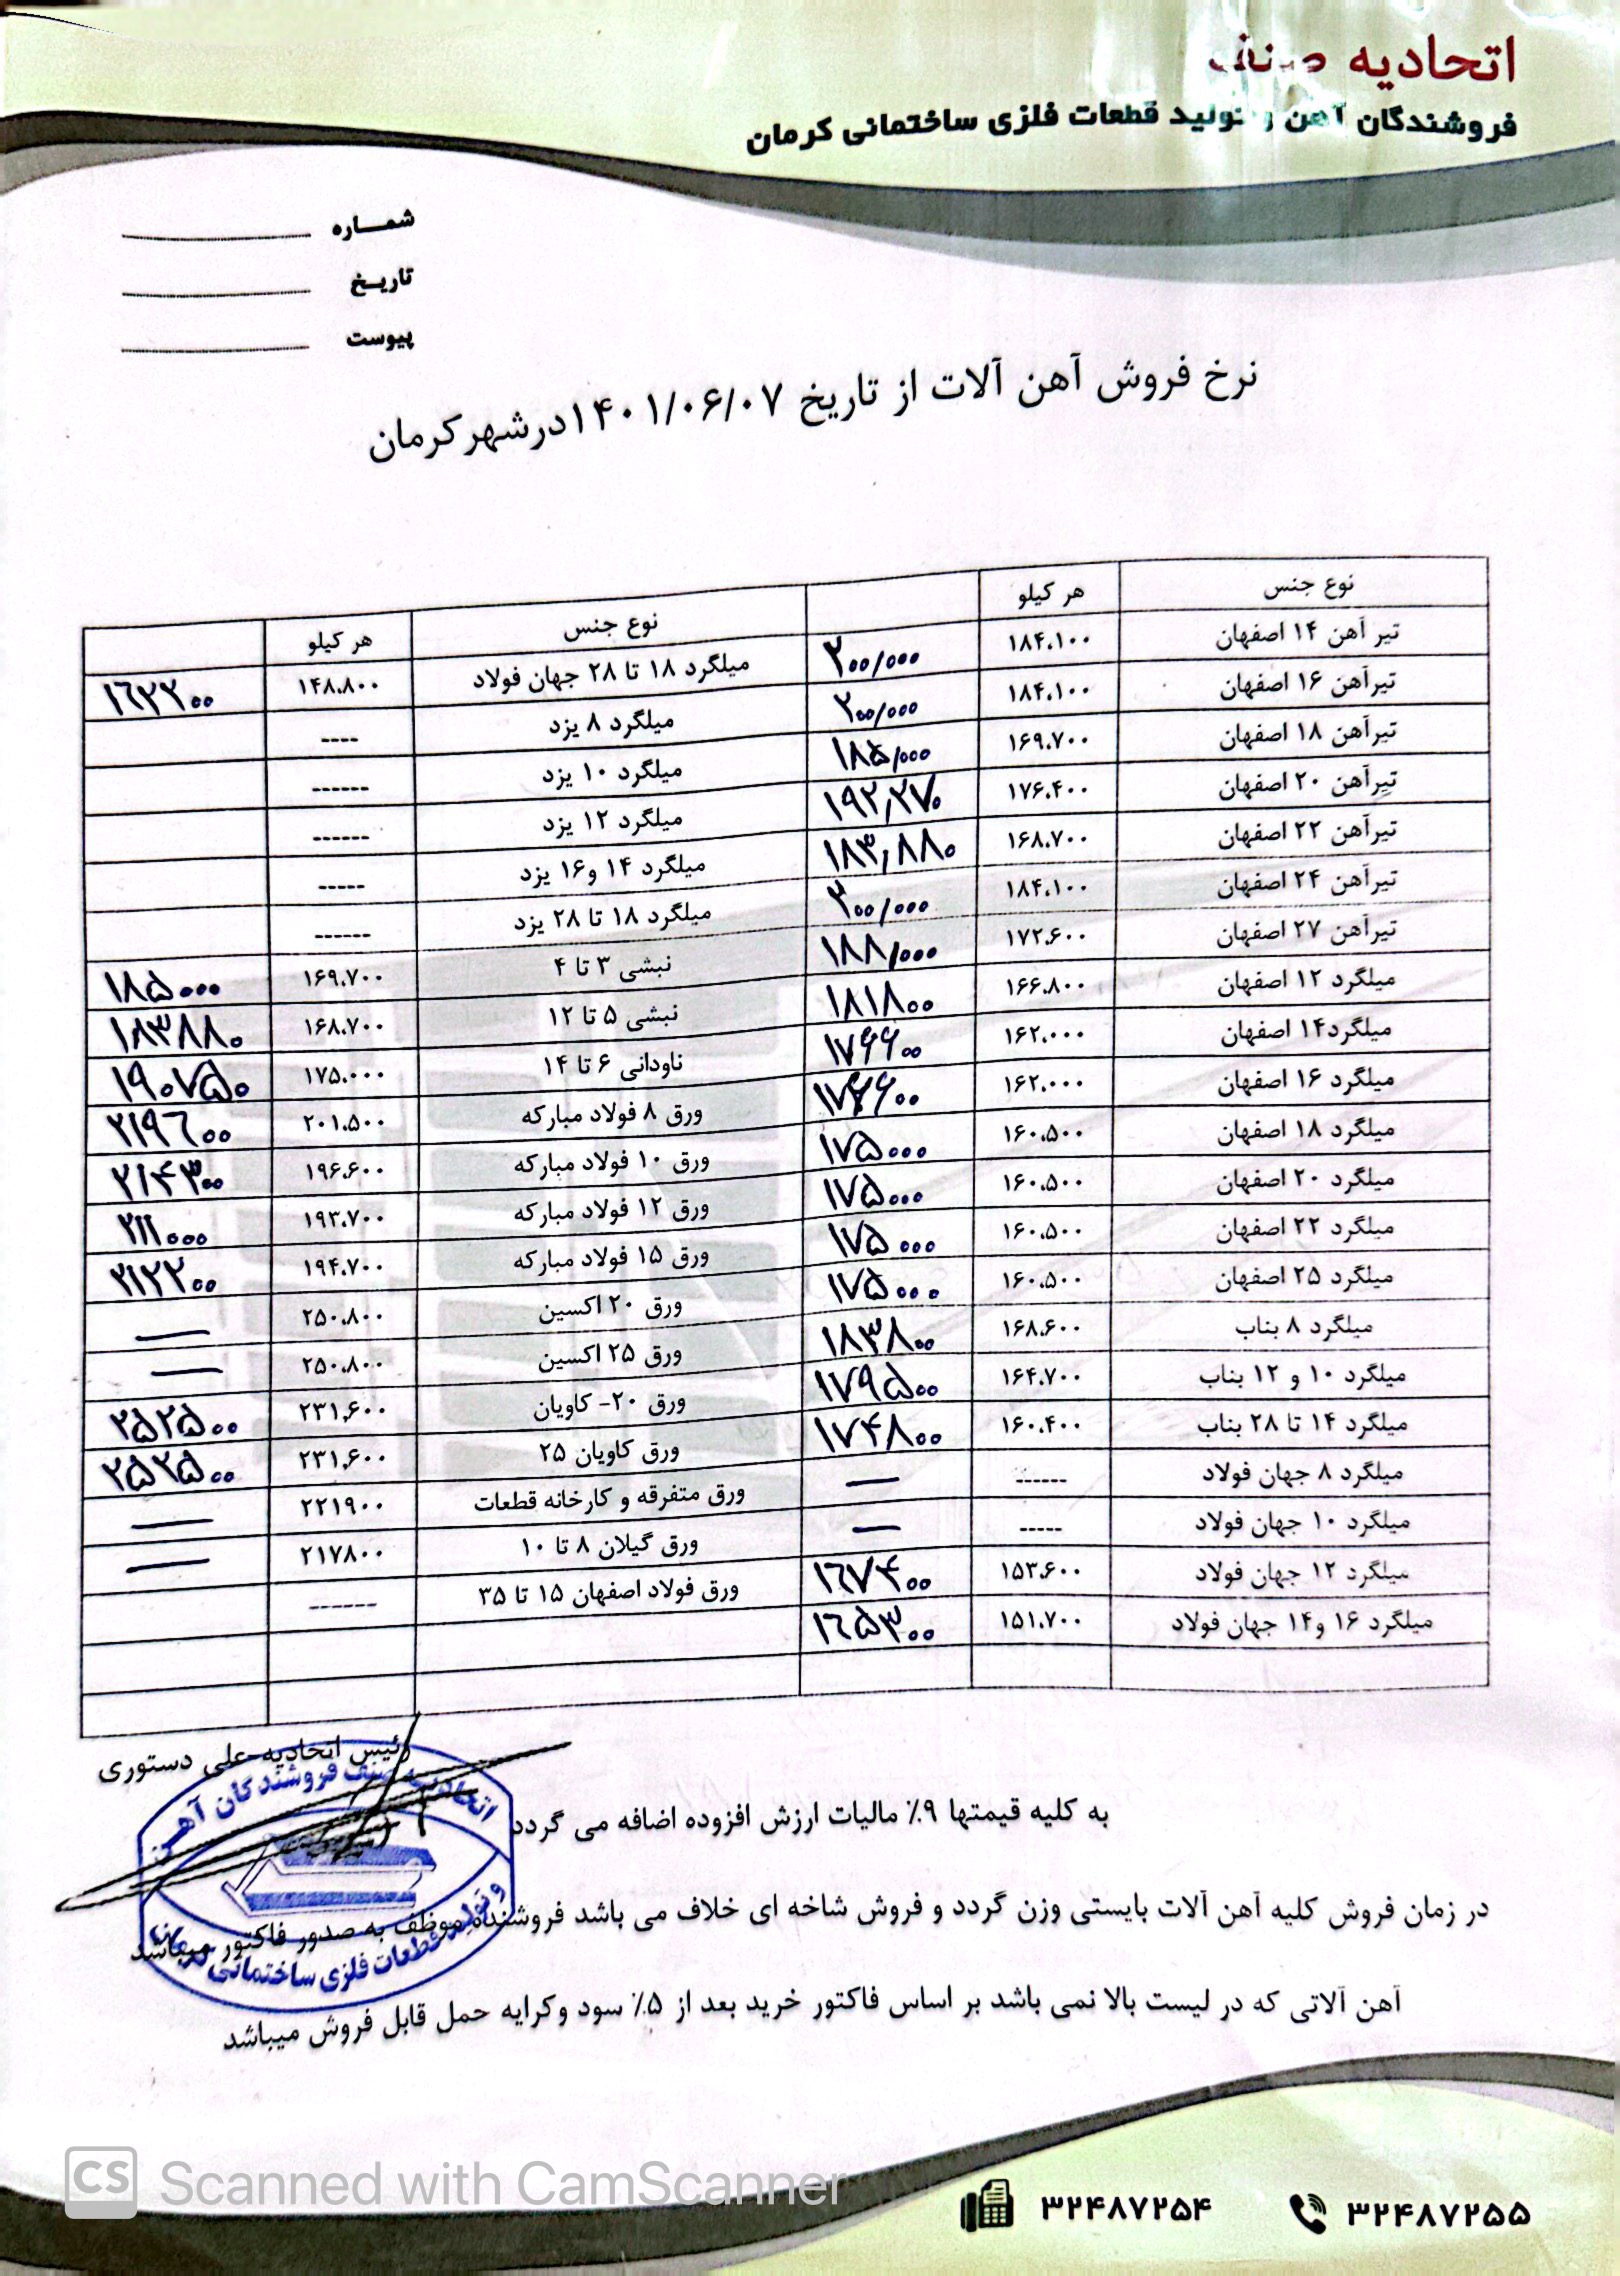 اتحادیه صنف
فروشندگان آهن و تولید قطعات فلزی ساختمانی کرمان
شمـــاره
تاریـخ
پیوست
نرخ فروش آهن آلات از تاریخ ۱۴۰۱/۰۶/۰۷ درشهر کرمان
نوع جنس هر کیلو نوع جنس هر کیلو
تیر آهن ۱۴ اصفهان ۱۸۴.۱۰۰ ۲۰۰/۰۰۰ میلگرد ۱۸ تا ۲۸ جهان فولاد ۱۴۸.۸۰۰ ۱۶۲۲۰۰
تیرآهن ۱۶ اصفهان ۱۸۴.۱۰۰ ۲۰۰/۰۰۰ میلگرد ۸ یزد ----
تیرآهن ۱۸ اصفهان ۱۶۹.۷۰۰ ۱۸۵/۰۰۰ میلگرد ۱۰ یزد ------
تیرآهن ۲۰ اصفهان ۱۷۶.۴۰۰ ۱۹۲,۲۷۰ میلگرد ۱۲ یزد ------
تیرآهن ۲۲ اصفهان ۱۶۸.۷۰۰ ۱۸۳,۸۸۰ میلگرد ۱۴ و۱۶ یزد -----
تیرآهن ۲۴ اصفهان ۱۸۴.۱۰۰ ۲۰۰/۰۰۰ میلگرد ۱۸ تا ۲۸ یزد ------
تیرآهن ۲۷ اصفهان ۱۷۲.۶۰۰ ۱۸۸/۰۰۰ نبشی ۳ تا ۴ ۱۶۹.۷۰۰ ۱۸۵۰۰۰
میلگرد ۱۲ اصفهان ۱۶۶.۸۰۰ ۱۸۱۸۰۰ نبشی ۵ تا ۱۲ ۱۶۸.۷۰۰ ۱۸۳۸۸۰
میلگرد۱۴ اصفهان ۱۶۲.۰۰۰ ۱۷۶۶۰۰ ناودانی ۶ تا ۱۴ ۱۷۵.۰۰۰ ۱۹۰۷۵۰
میلگرد ۱۶ اصفهان ۱۶۲.۰۰۰ ۱۷۶۶۰۰ ورق ۸ فولاد مبارکه ۲۰۱.۵۰۰ ۲۱۹۶۰۰
میلگرد ۱۸ اصفهان ۱۶۰.۵۰۰ ۱۷۵۰۰۰ ورق ۱۰ فولاد مبارکه ۱۹۶.۶۰۰ ۲۱۴۳۰۰
میلگرد ۲۰ اصفهان ۱۶۰.۵۰۰ ۱۷۵۰۰۰ ورق ۱۲ فولاد مبارکه ۱۹۳.۷۰۰ ۲۱۱۰۰۰
میلگرد ۲۲ اصفهان ۱۶۰.۵۰۰ ۱۷۵۰۰۰ ورق ۱۵ فولاد مبارکه ۱۹۴.۷۰۰ ۲۱۲۲۰۰
میلگرد ۲۵ اصفهان ۱۶۰.۵۰۰ ۱۷۵۰۰۰ ورق ۲۰ اکسین ۲۵۰.۸۰۰ —
میلگرد ۸ بناب ۱۶۸.۶۰۰ ۱۸۳۸۰۰ ورق ۲۵ اکسین ۲۵۰.۸۰۰ —
میلگرد ۱۰ و ۱۲ بناب ۱۶۴.۷۰۰ ۱۷۹۵۰۰ ورق ۲۰- کاویان ۲۳۱,۶۰۰ ۲۵۲۵۰۰
میلگرد ۱۴ تا ۲۸ بناب ۱۶۰.۴۰۰ ۱۷۴۸۰۰ ورق کاویان ۲۵ ۲۳۱,۶۰۰ ۲۵۲۵۰۰
میلگرد ۸ جهان فولاد ------ — ورق متفرقه و کارخانه قطعات ۲۲۱۹۰۰ —
میلگرد ۱۰ جهان فولاد ----- — ورق گیلان ۸ تا ۱۰ ۲۱۷۸۰۰ —
میلگرد ۱۲ جهان فولاد ۱۵۳.۶۰۰ ۱۶۷۴۰۰ ورق فولاد اصفهان ۱۵ تا ۳۵ ------
میلگرد ۱۶ و۱۴ جهان فولاد ۱۵۱.۷۰۰ ۱۶۵۳۰۰
رئیس اتحادیه-علی دستوری
اتحادیه صنف فروشندگان آهن
و تولید قطعات فلزی ساختمانی کرمان
به کلیه قیمتها ۹٪ مالیات ارزش افزوده اضافه می گردد
در زمان فروش کلیه آهن آلات بایستی وزن گردد و فروش شاخه ای خلاف می باشد فروشنده موظف به صدور فاکتور میباشد
آهن آلاتی که در لیست بالا نمی باشد بر اساس فاکتور خرید بعد از ۵٪ سود وکرایه حمل قابل فروش میباشد
CS Scanned with CamScanner
۳۲۴۸۷۲۵۴ ۳۲۴۸۷۲۵۵